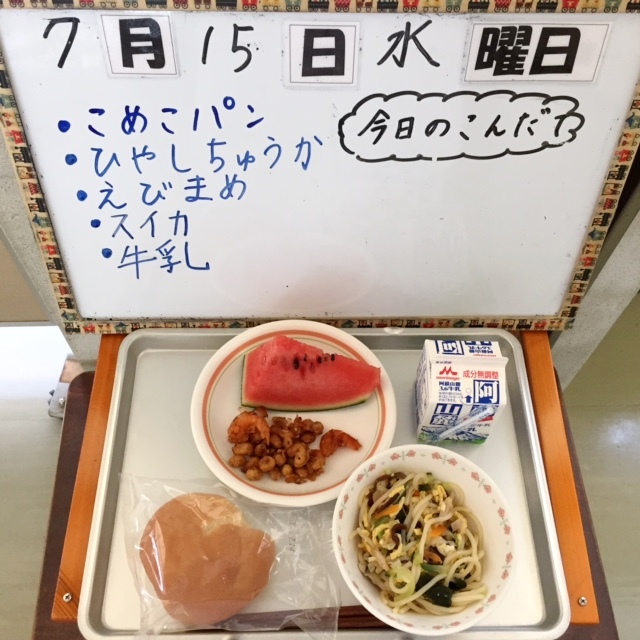 7月15日水曜日
今日のこんだて
・こめこパン
・ひやしちゅうか
・えびまめ
・スイカ
・牛乳
成分無調整